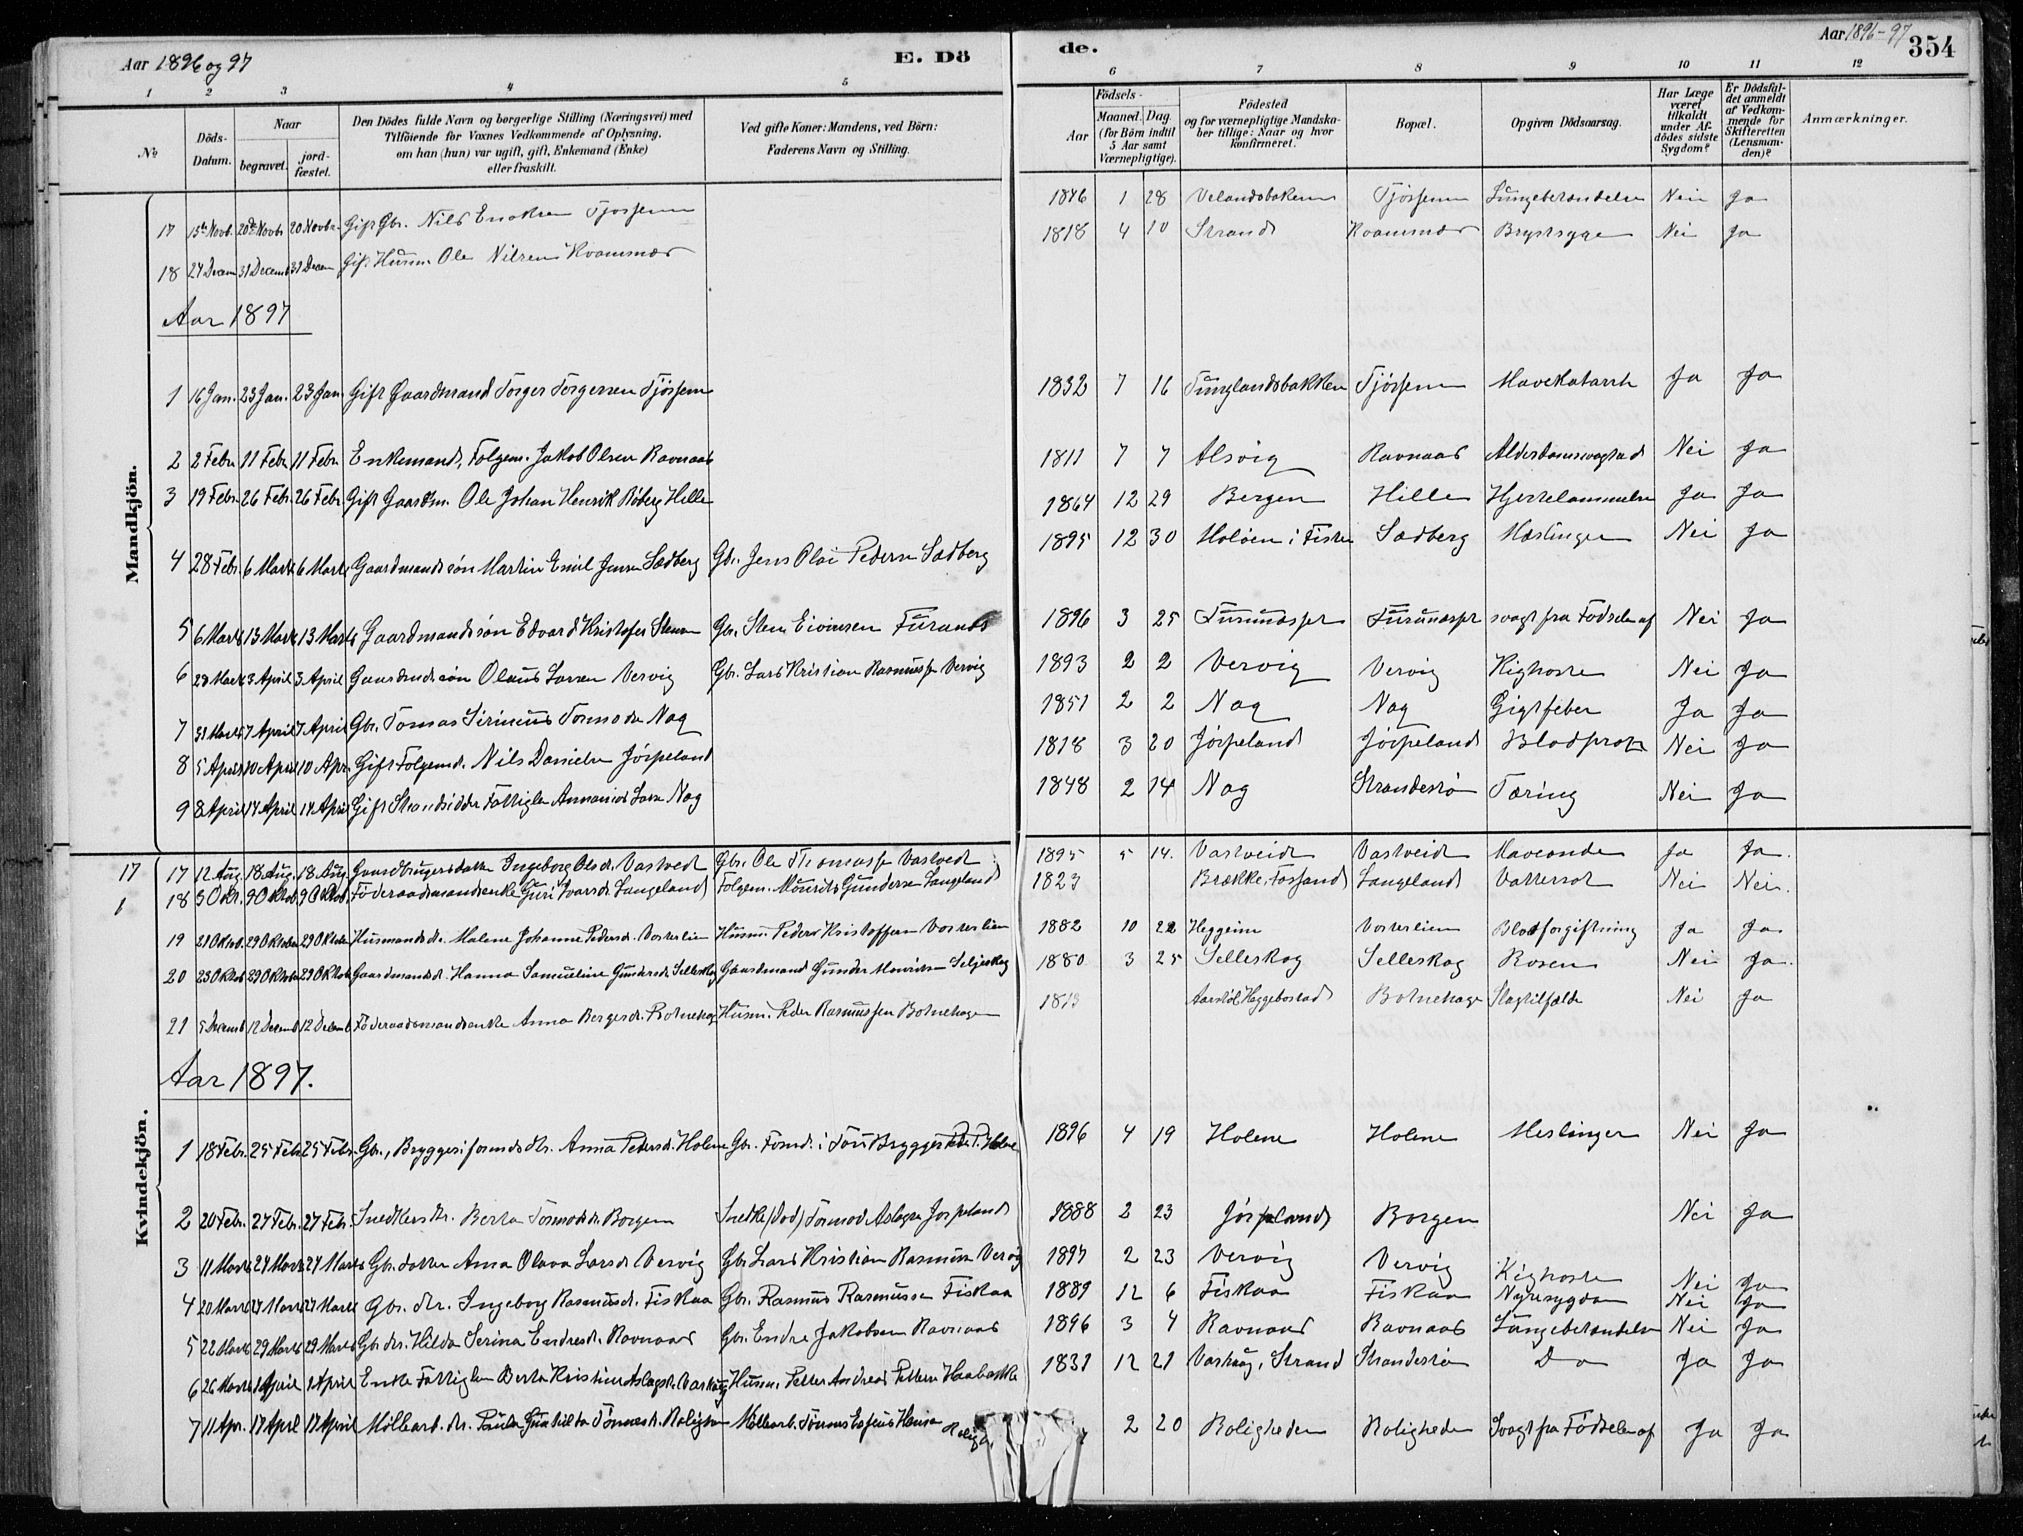 Aar 1896 og 97
E. Dö
de.
Aar 1896-97
354
1 2 3 4 5 6 7 8 9 10 11 12
No
Döds-Datum.
Naar
begravet.
jordfæstet.
Den Dödes fulde Navn og borgerlige Stilling (Næringsvei) med
Tilföiende for Voxnes Vedkommende af Oplysning,
om han (hun) var ugift, gift, Enkemand (Enke)
eller fraskilt.
Ved gifte Koner: Mandens, ved Börn:
Faderens Navn og Stilling.
Födsels-
Aar
Maaned. Dag.
(for Börn indtil
5 Aar samt
Værnepligtige).
Födested
og for værnepligtige Mandska-
ber tillige: Naar og hvor
konfirmeret.
Bopæl.
Opgiven Dödsaarsag.
Har Læge
været
tilkaldt
under Af-
dödes sidste
Sygdom?
Er Dödsfal-
det anmeldt
af Vedkom-
mende for
Skifteretten
(Lensman-
den)?
Anmærkninger.
Mandkjön.
17 15de Novb. 20de Novb. 20 Novbr. Gift Gbr. Nils Enoksen Tjøssem 1846 1 28 Velandsbakken Tjøssem Lungebetændelse Nei Ja
18 24 Decem 31 Decemb 31 Decem Gift Husm. Ole Nilsen Kvamnæs 1818 4 10 Strand Kvamnæs Brystsyge Nei Ja
Aar 1897
1 16 Jan. 23 Jan. 23 Jan. Gift Gaardmand Torger Torgersen Tjøssem 1832 7 16 Tunglandsbakken Tjössem Mavekatarrh Ja Ja
2 2 Febr 11 Febr 11 Febr Enkemand, Folgem. Jakob Olsen Ravnaas 1811 7 7 Alsvig Ravnaas Alderdomssvaghed Nei Ja
3 19 Febr. 26 Febr. 26 Febr. Gift Gaardm. Ole Johan Henrik Röberg Hille 1864 12 29 Bergen Hille Hjertelammelse Ja Ja
4 28 Febr. 6 Marts 6 Marts Gaardmandssön Martin Emil Jensen Sædberg Gbr. Jens Olai Pedersen Sædberg 1895 12 30 Holöen i Fister Sædberg Mæslinger Nei Ja
5 6 Marts 13 Marts 13 Marts Gaardmandssön Edvard Kristofer Stensen Gbr. Sten Eivinsen Furunæs 1896 3 25 Furunæsset Furunæsset svagt fra Födselen af Nei Ja
6 28 Marts 3 April 3 April Gaardmdssön Olaus Larsen Vervig Gbr. Lars Kristian Rasmussen Vervig 1893 2 2 Vervig Vervig Kighoste Nei Ja
7 31 Marts 7 April 7 April Gbr. Tomas Sirinius Tormodsen Nag 1851 2 2 Nag Nag Gigtfeber Ja Ja
8 5 April 10 April 10 Apr. Gift Folgemd. Nils Danielsen Jörpeland 1818 3 20 Jörpeland Jörpeland Blodprop Nei Ja
9 8 April 14 April 14 April Gift Strandsidder Fattiglem Annanias Larsen Nag 1848 2 14 Nag Strandestø Tæring Nei Ja
Kvindekjön.
17 17 12 Aug. 18 Aug. 18 Aug. Gaardbrugersdatter Ingeborg Olsdr. Vastvedt Gbr. Ole Thomassen Vastvedt 1895 5 14. Vastveidt Vastveidt Maveonde Ja Ja.
18 3 Okt. 9 Oktob. 9 Oktob. Föderaadsmandsenke Guri Ivarsdr. Langeland Folgem. Mourits Gundersen Langeland 1823 Brække, Fossand Langeland Vattersot Nei Nei.
19 21 Oktob. 29 Oktober 29 Oktober Husmandsdr. Malene Johanne Pedersdr. Vosterlien Husm. Peder Kristoffersen Vosterlien 1882 10 22 Heggeim Vosterlien Blodforgiftning Ja Ja
20 23 Oktob 29 Oktob 29 Oktob Gaardmandsd. Hanna Samueline Gundersdr. Selleskog Gaardmand Gunder Mouritsen Seljeskog 1880. 3 25 Selleskog Selleskog Rosen Nei Ja.
21 5 Decemb 12 Decemb 12 Decemb Föderaadsmandsenke Anna Bergesdr. Botnehage Husm. Peder Rasmussen Botnehagen 1813 Aarstöl Heggebostad Botnehage Slagtilfælde Nei Ja
Aar 1897.
1 18 Febr. 25 Febr. 25 Febr. Gbr., Bryggeriformds dtr. Anna Pedersdr. Holene Gbr. Formd. i Tou Bryggeri Peder P. Holene 1896 4 19 Holene Holene Meslinger Nei Ja
2 20 Febr. 27 Febr. 27 Febr. Snedkers dtr. Berta Tormodsdr. Borgen Snedker (död) Tormod Aslagsen Jörpeland 1888 2 23 Jörpeland Borgen Nei Ja
3 11 Marts 24 Marts 24 Marts Gbr. datter Anna Olava Larsdr. Vervig Gbr. Lars Kristian Rasmussen Vervig 1897 2 23 Vervig Vervig Kighoste Nei Ja
4 20 Marts 27 Marts 27 Marts Gbr. dtr. Ingeborg Rasmusdr. Fiskaa Gbr. Rasmus Rasmussen Fiskaa 1889 12 6 Fiskaa Fiskaa Nyresygdom Nei Ja
5 22 Marts 29 Marts 29 Marts Gbr. dtr. Hilda Serina Endresdr. Ravnaas Gbr. Endre Jakobsen Ravnaas 1896 3 4 Ravnaas Ravnaas Lungebetændelse Nei Ja
6 26 Marts 1 April 1 April Enke Fattiglem Berta Kristine Aslagsdr. Vaskaag Husm. Petter Andreas Pettersen Haabakke 1831 12 21 Vaskaag, Strand Strandestø Do Ja Ja
7 11 Apr. 17 April 17 April Mölleard. dtr. Gunhilda Tönnesdr. Roligheden Mölleard. Tönnes Hansen Roligh. 2 20 Roligheden Roligheden Svagt fra Födselen af Ja Ja